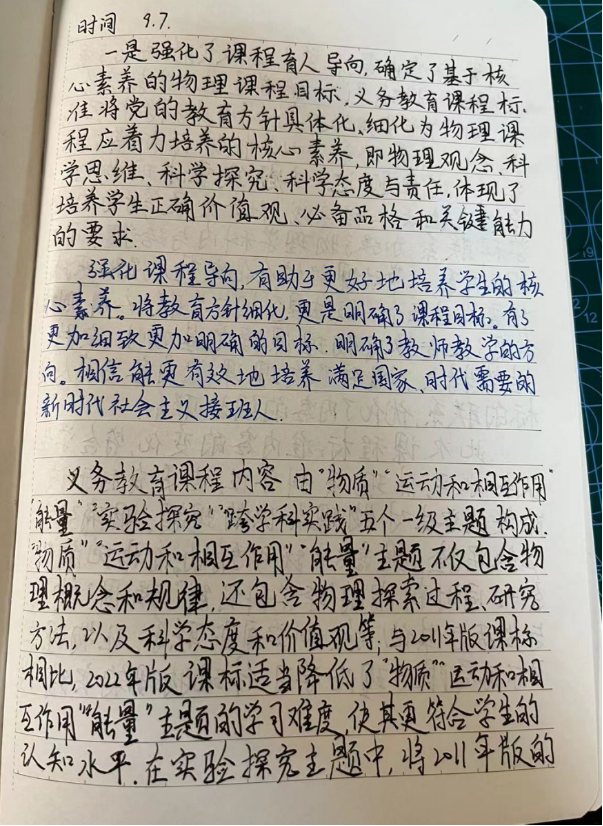 时间 9.7.
一是强化了课程育人导向,确定了基于核
心素养的物理课程目标.义务教育课程标
准将党的教育方针具体化、细化为物理课
程应着力培养的核心素养,即物理观念、科
学思维、科学探究、科学态度与责任,体现了
培养学生正确价值观、必备品格和关键能力
的要求.
强化课程导向,有助于更好地培养学生的核
心素养。将教育方针细化,更是明确了课程目标。有了
更加细致更加明确的目标.明确了教师教学的方
向。相信能更有效地培养满足国家、时代需要的
新时代社会主义接班人.
义务教育课程内容由“物质”“运动和相互作用”
“能量”“实验探究”“跨学科实践”五个一级主题构成.
“物质”“运动和相互作用”“能量”主题不仅包含物
理概念和规律,还包含物理探索过程、研究
方法,以及科学态度和价值观等,与2011年版课标
相比,2022年版课标适当降低了“物质”“运动和相
互作用”“能量”主题的学习难度,使其更符合学生的
认知水平.在实验探究主题中,将2011年版的